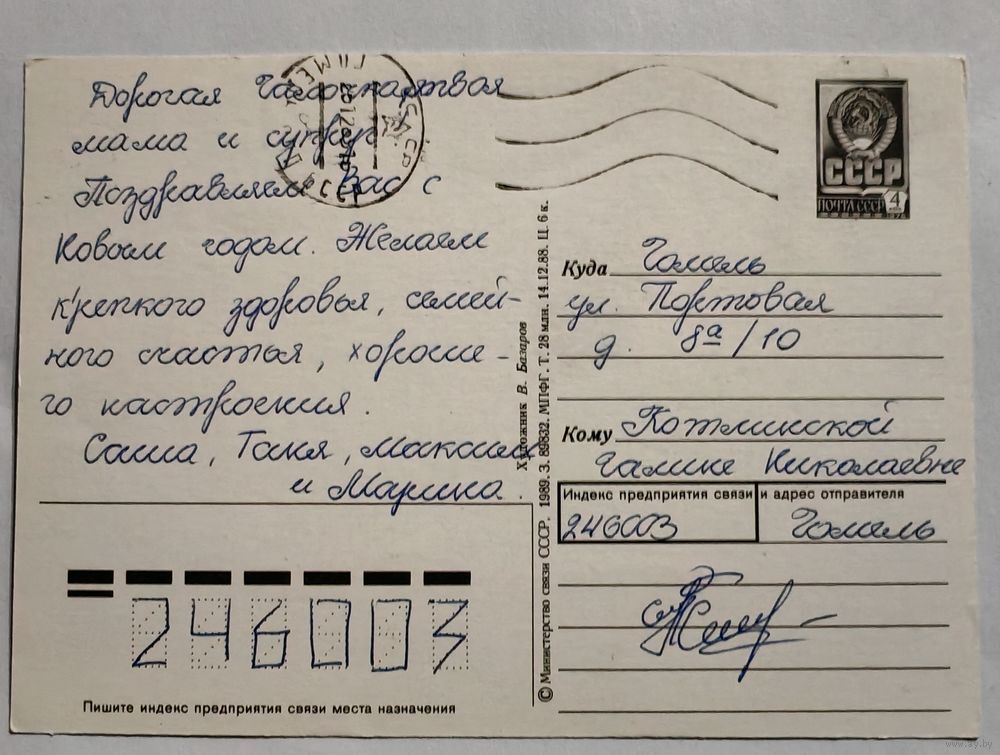 Дорогая
мама и супруг
Поздравляем Вас с
Новым годом. Желаем
крепкого здоровья, семей-
ного счастья, хороше-
го настроения.
Саша, Таня, Максим
и Марина.
Пишите индекс предприятия связи места назначения
246003
© Министерство связи СССР. 1989. З. 89832. МПФГ. Т. 28 млн. 14.12.88. Ц. 6 к.
Художник В. Базаров
СССР
ПОЧТА СССР
4
Куда Гомель
ул. Портовая
д. 8а/10
Кому Котлинской
Галине Николаевне
Индекс предприятия связи и адрес отправителя
246003 Гомель
www.ay.by